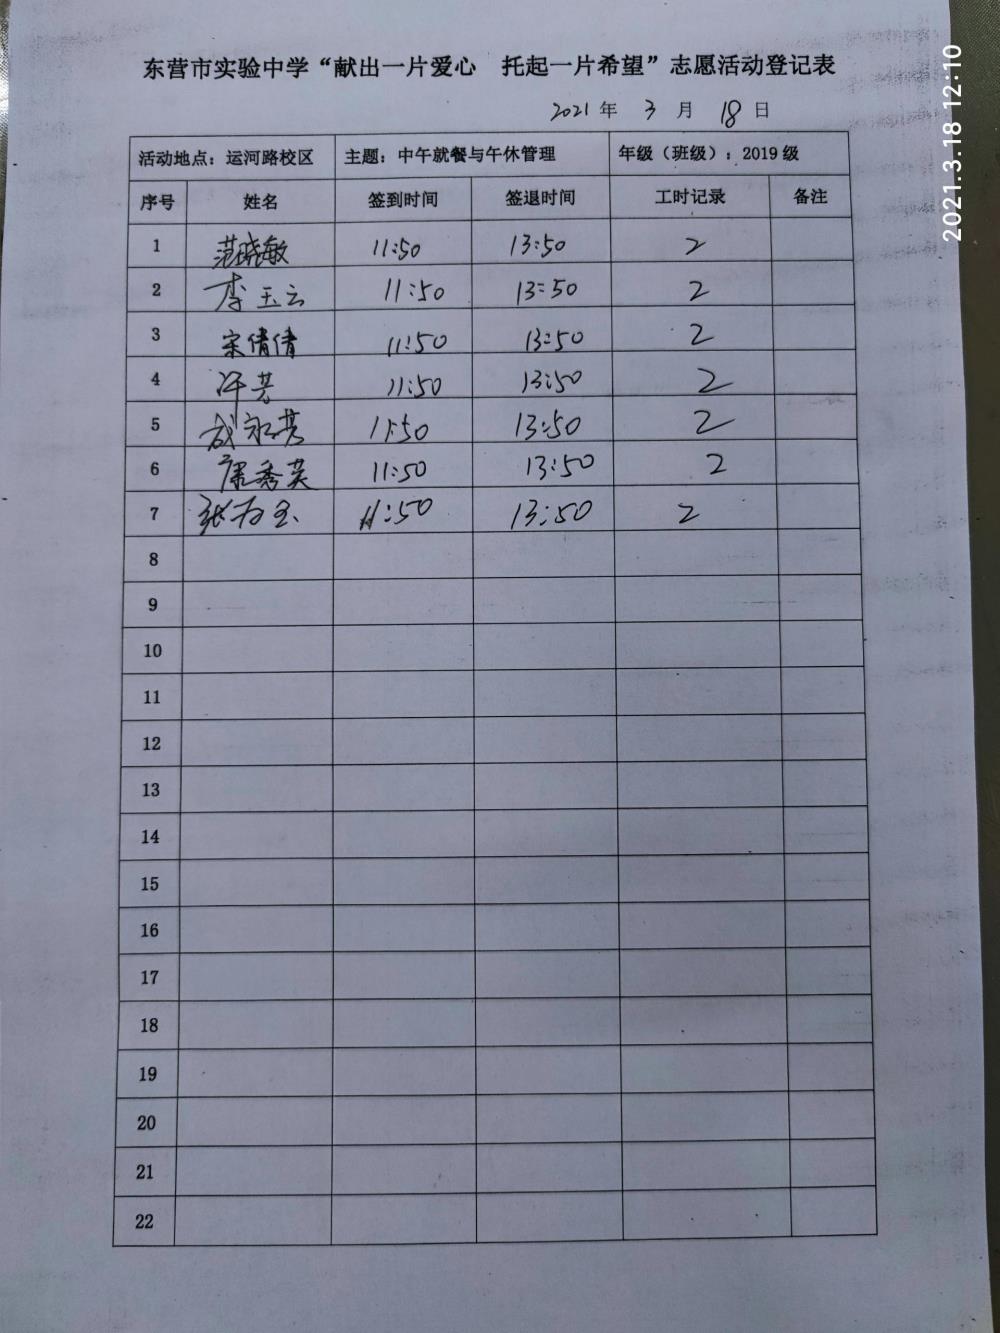 东营市实验中学“献出一片爱心 托起一片希望”志愿活动登记表
2021 年 3 月 18 日
活动地点：运河路校区 主题：中午就餐与午休管理 年级（班级）：2019 级
序号 姓名 签到时间 签退时间 工时记录 备注
1 范晓敏 11:50 13:50 2
2 李玉云 11:50 13:50 2
3 宋倩倩 11:50 13:50 2
4 许芳 11:50 13:50 2
5 成永芳 11:50 13:50 2
6 康秀英 11:50 13:50 2
7 张 11:50 13:50 2
8
9
10
11
12
13
14
15
16
17
18
19
20
21
22
2021.3.18 12:10